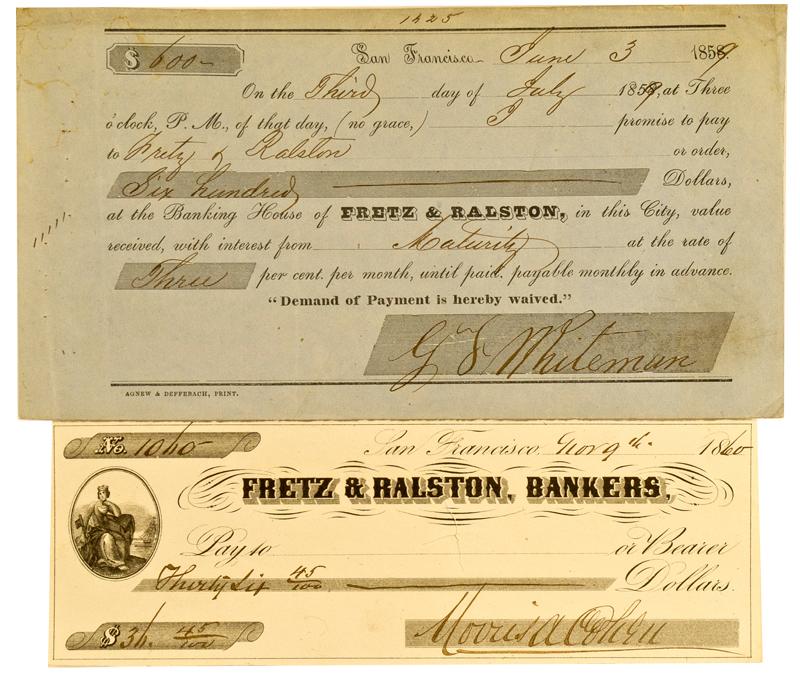 1225
$ 600- San Francisco June 3 1859.
On the Third day of July 1859, at Three
o'clock, P. M., of that day, (no grace,) I promise to pay
to Fretz & Ralston or order,
Six hundred Dollars,
at the Banking House of FRETZ & RALSTON, in this City, value
received, with interest from Maturity at the rate of
Three per cent. per month, until paid, payable monthly in advance.
"Demand of Payment is hereby waived."
Whiteman
AGNEW & DEFFEBACH, PRINT.
No. 1060 San Francisco, Nov 9th 1860
FRETZ & RALSTON, BANKERS,
Pay to or Bearer
Thirty Six 45/100 Dollars.
$ 36. 45/100 Morris A Cohen